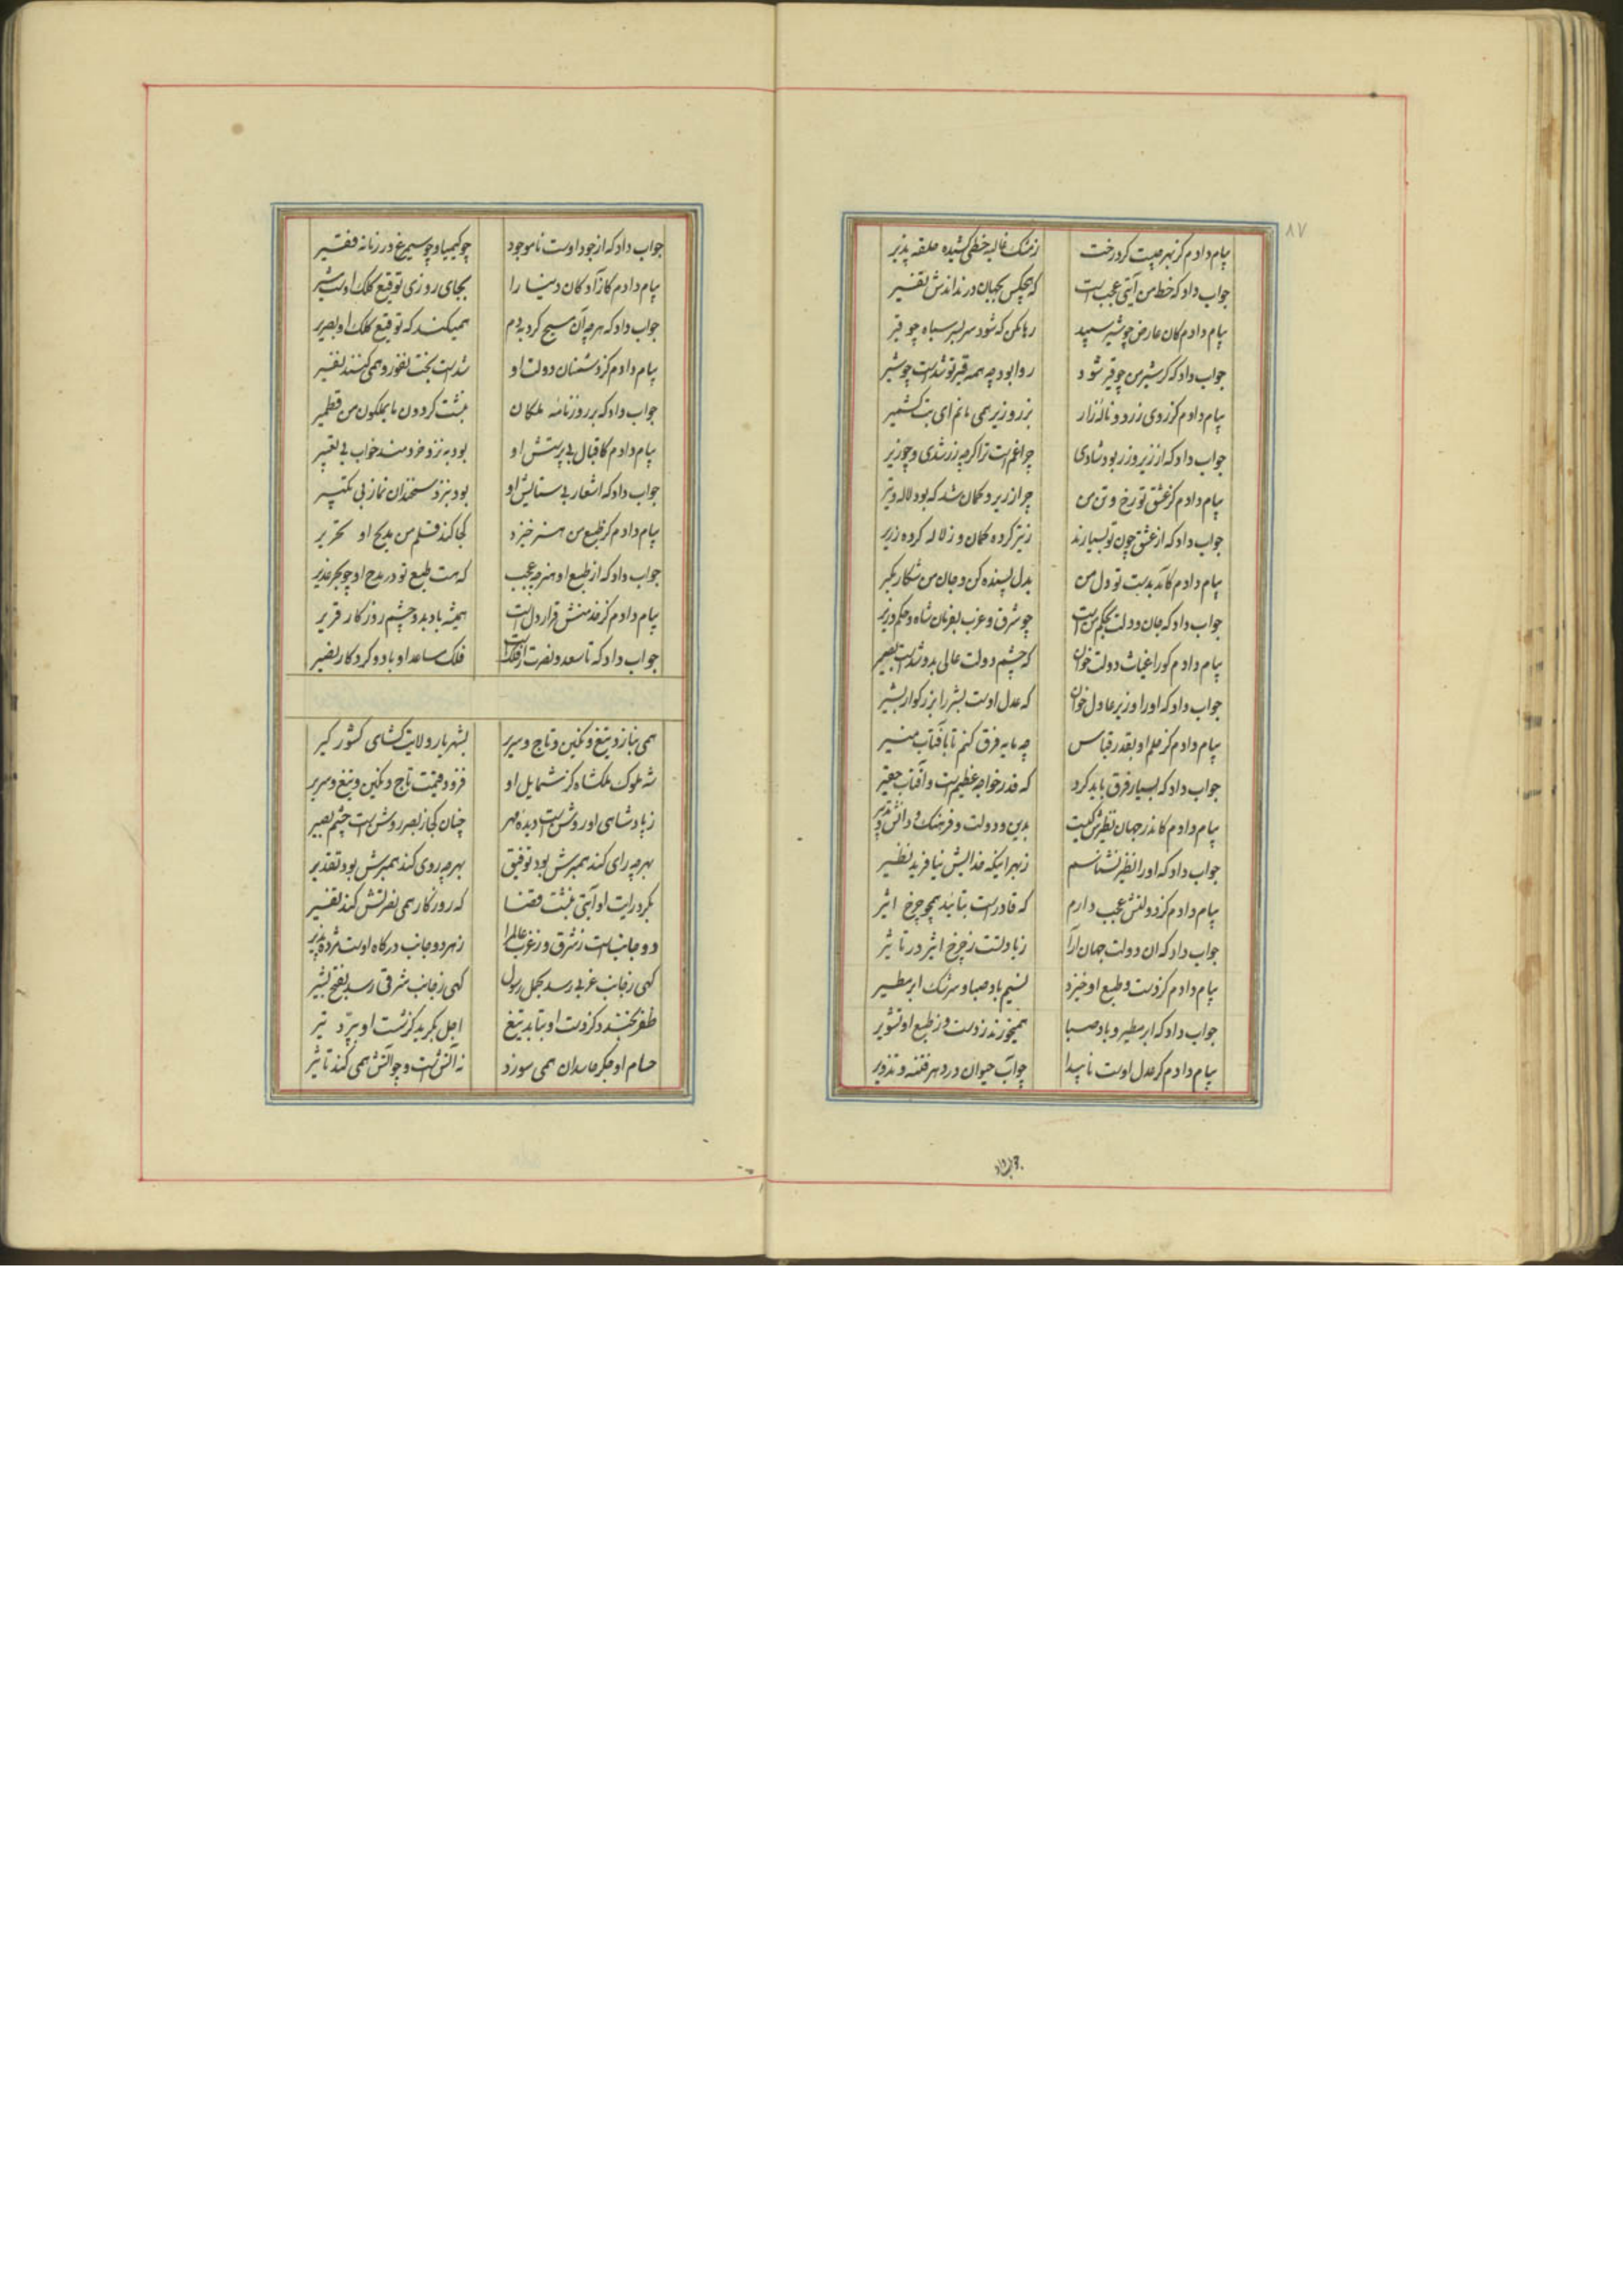 ۸۷
پیام دادم کز بهر چیست گرد رخت ز مشک غالیه خطی کشیده حلقه پذیر
جواب داد که خط من آیتی عجب است که هیچکس بجهان در نداندش تفسیر
پیام دادم کان عارض چو شیر سپید رها مکن که شود سربسر سیاه چو قیر
جواب داد که گر شیر من چو قیر شود روا بود چه همه قیر تو شدست چو شیر
پیام دادم کز روی زرد و ناله زار بزر و زیر همی مانم ای بت کشمیر
جواب داد که از زیر و زر بود شادی چرا غم است ترا گر چه زر شدی و چو زیر
پیام دادم کز عشق تو رخ و تن من چرا زریر و کمان شد که بود لاله و تیر
جواب داد که از عشق چون تو بسیارند ز تیر کرده کمان و ز لاله کرده زریر
پیام دادم کآمد بدست تو دل من بدل بسنده کن و جان من شکار مگیر
جواب داد که جان و دلت بحکم من است چو شرق و غرب بفرمان شاه و حکم وزیر
پیام دادم کو را غیاث دولت خوان که چشم دولت عالی بدو شدست بصیر
جواب داد که او را وزیر عادل خوان که عدل اوست بشر را بزرگوار بشیر
پیام دادم کز حلم او بقدر قیاس چه مایه فرق کنم تا بآفتاب منیر
جواب داد که بسیار فرق باید کرد که قدر خواجه عظیم است و آفتاب حقیر
پیام دادم کاندر جهان نظیرش کیست بدین و دولت و فرهنگ و دانش و تدبیر
جواب داد که او را نظیر نشناسم ز بهر اینکه خدایش نیافرید نظیر
پیام دادم کز دولتش عجب دارم که قادر است بتایید همچو چرخ اثیر
جواب داد که آن دولت جهان آرا زیادتست ز چرخ اثیر در تاثیر
پیام دادم کز دست و طبع او خیزد نسیم باد صبا و سرشک ابر مطیر
جواب داد که ابر مطیر و باد صبا همیخورند ز دست و ز طبع او تشویر
پیام دادم کز عدل اوست ناپیدا چو آب حیوان در دهر فتنه و تزویر
جواب داد
جواب داد که از جود اوست ناموجود چو کیمیا و چو سیمرغ در زمانه فقیر
پیام دادم کآزادگان دنیا را بجای روزی توقیع کلک اوست مشیر
جواب داد که هر چه آن مسیح کرد بدم همیکند که توقیع کلک او بصریر
پیام دادم کز دشمنان دولت او شدست بخت نفور و همی کنند نفیر
جواب داد که بر روزنامه ملکان نبشت گردون ما یملکون من قطمیر
پیام دادم کاقبال بی پرستش او بود به نزد خردمند خواب بی تعبیر
جواب داد که اشعار بی ستایش او بود بنزد سخندان نماز بی تکبیر
پیام دادم کز طبع من هنر خیزد کجا کند قلم من مدیح او تحریر
جواب داد که از طبع او هنر چه عجب که هست طبع تو در مدح او چو بحر غدیر
پیام دادم کز خدمتش قرار دل است همیشه باد بدو چشم روزگار قریر
جواب داد که تا سعد و نصرت از فلک است فلک مساعد او باد و کردگار نصیر
همی بنازد تیغ و نگین و تاج و سریر بشهریار ولایت گشای کشور گیر
شه ملوک ملکشاه کز شمایل او فزود قیمت تاج و نگین و تیغ و سریر
ز پادشاهی او روشن است دیده مهر چنان کجا ز بصر روشن است چشم بصیر
بهر چه رای کند همبرش بود توفیق بهر چه روی کند همبرش بود تقدیر
بگرد رایت او آیتی نبشت قضا که روزگار همی نصرتش کند تفسیر
دو جانب است ز شرق و ز غرب عالم را ز هر دو جانب درگاه اوست مژده پذیر
گهی ز جانب غربی رسد بحمل رسول گهی ز جانب شرقی رسد بفتح بشیر
ظفر بخندد کز دست او بتابد تیغ اجل بگرید کز شست او بپرد تیر
حسام او جگر حاسدان همی سوزد نه آتش است و چو آتش همی کند تاثیر